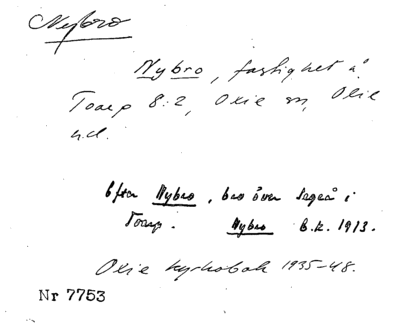 Nybro
Nybro, fastighet å
Toarp 8:2, Oxie sn, Oxie
hd.
Efter Nybro, bro över Segeå i
Toarp. Nybro E.k. 1913.
Oxie kyrkobok 1935-48.
Nr 7753